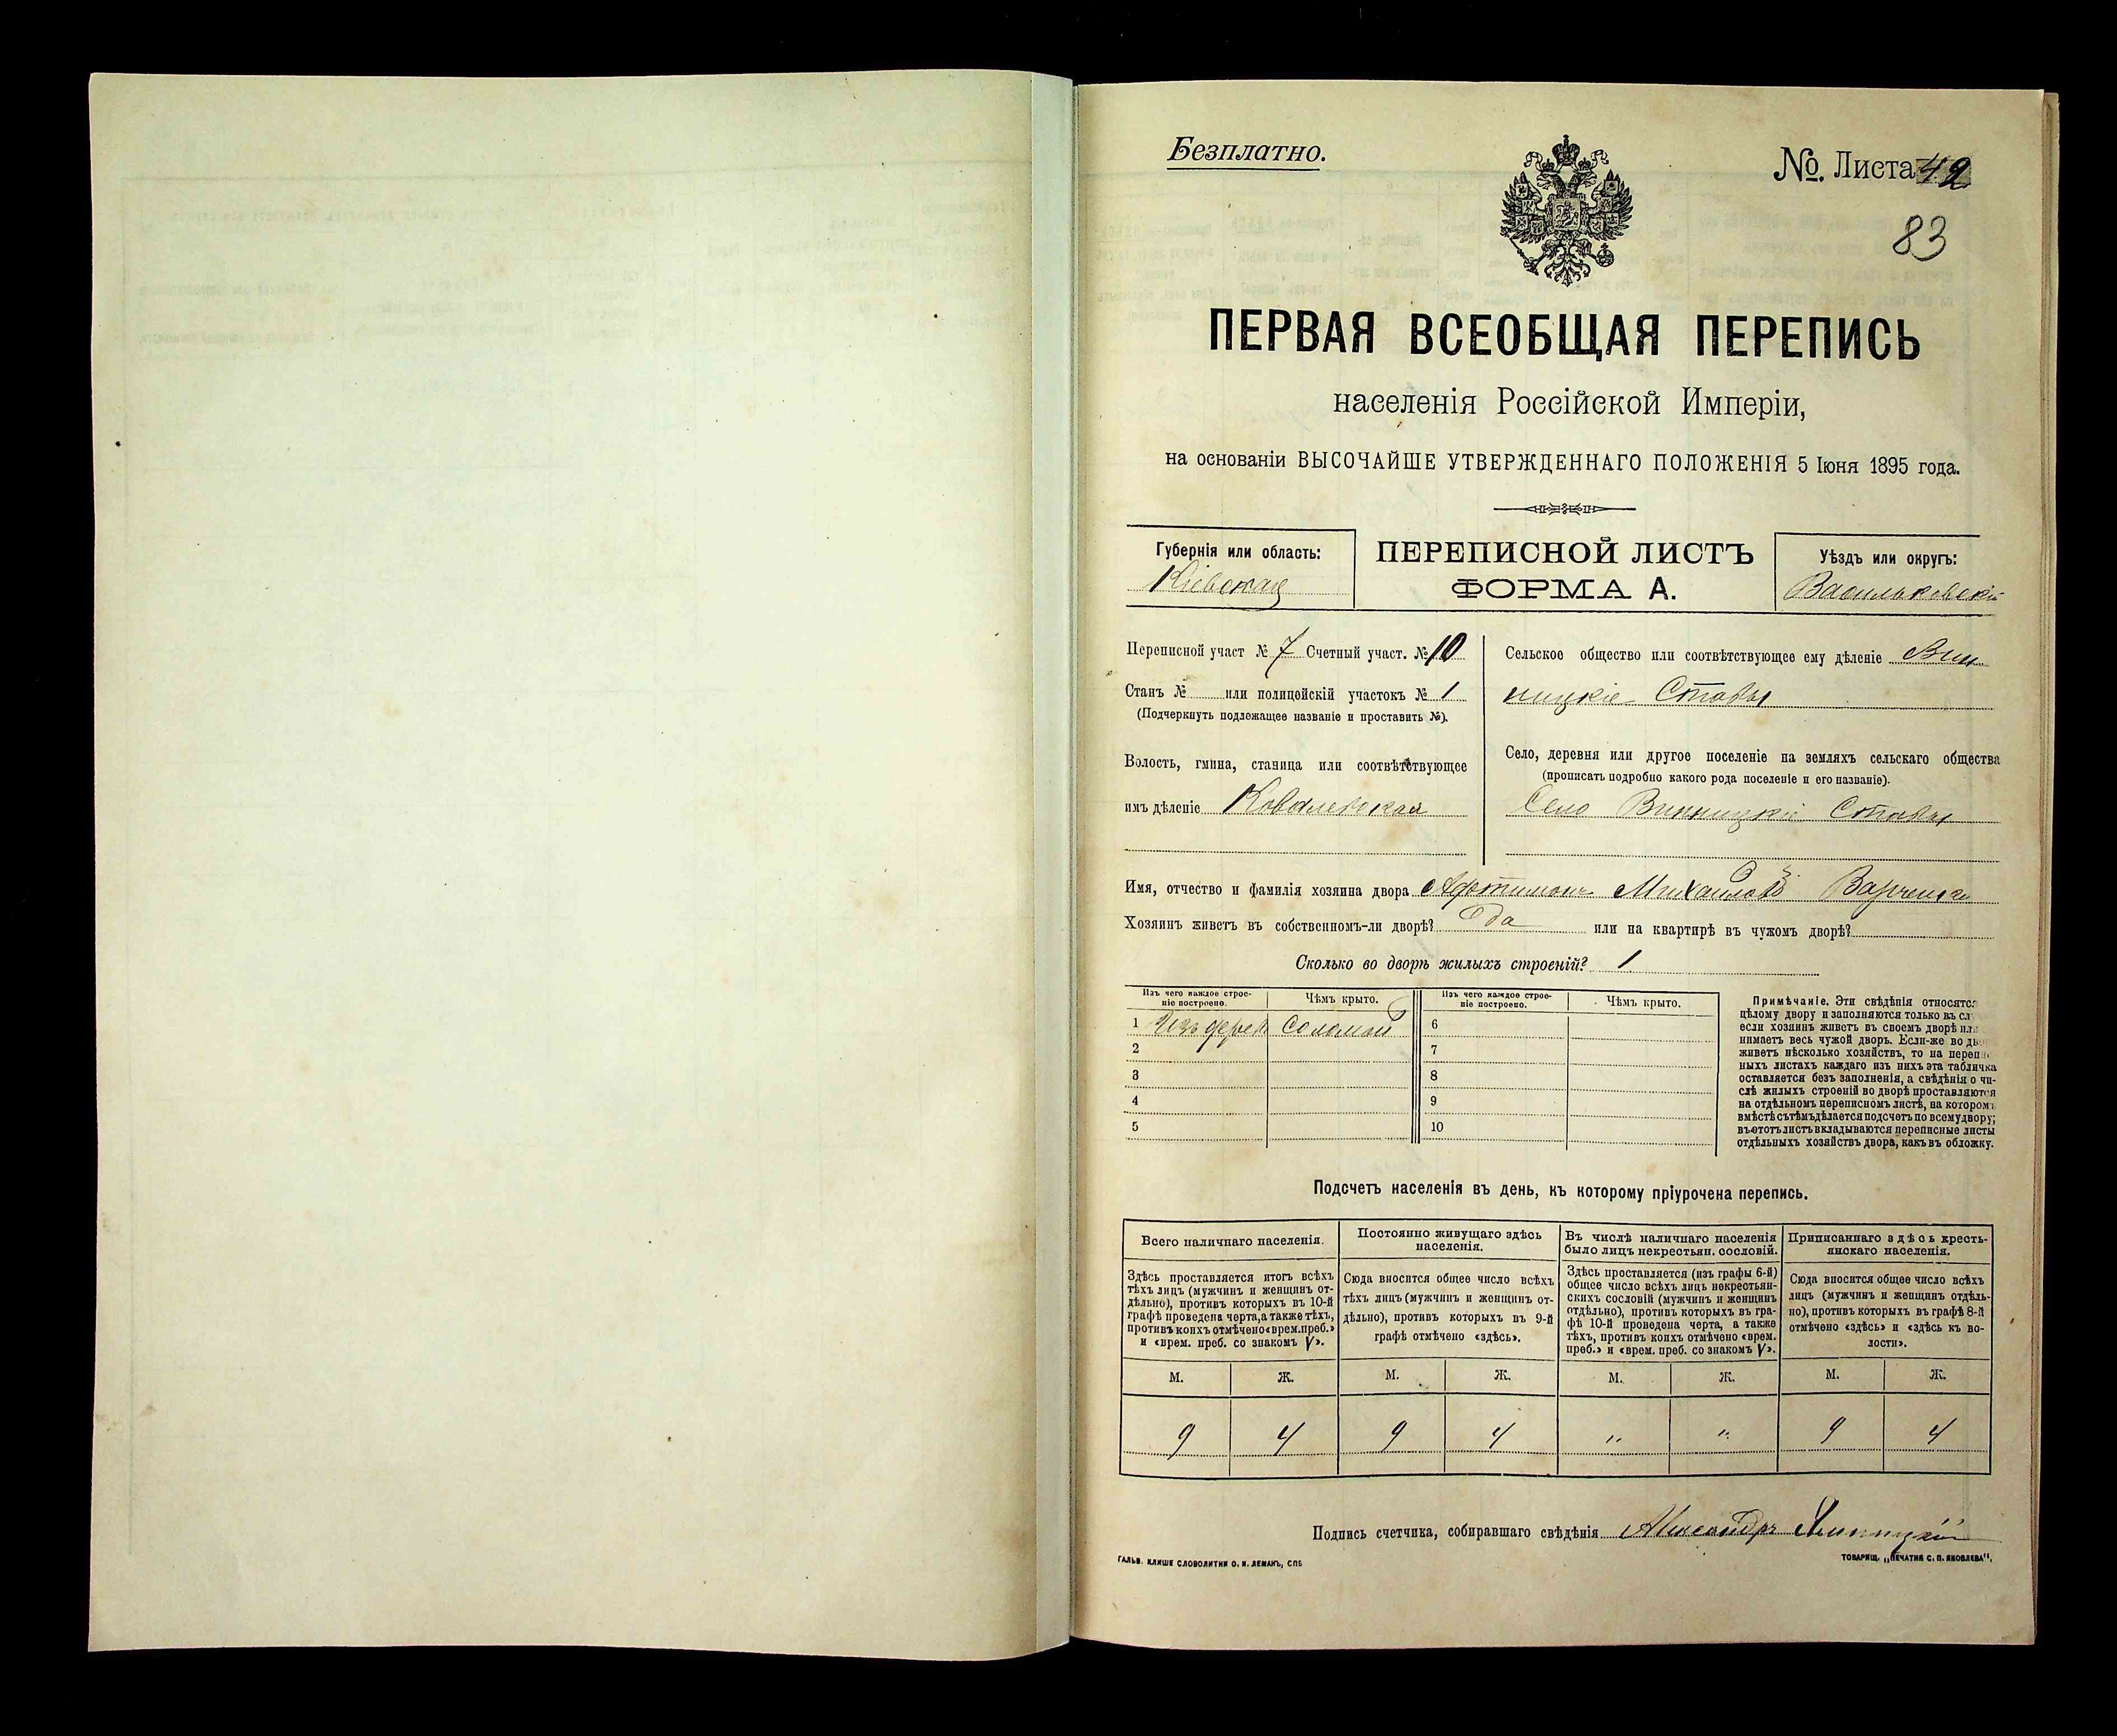 Безплатно.
№. Листа 42
83
ПЕРВАЯ ВСЕОБЩАЯ ПЕРЕПИСЬ
населенія Россійской Имперіи,
на основаніи ВЫСОЧАЙШЕ УТВЕРЖДЕННАГО ПОЛОЖЕНІЯ 5 Іюня 1895 года.
Губернія или область:
Кіевская
ПЕРЕПИСНОЙ ЛИСТЪ
ФОРМА А.
Уѣздъ или округъ:
Васильковскій
Переписной участ № 7 Счетный участ. № 10
Станъ № или полицейскій участокъ № 1
(Подчеркнуть подлежащее названіе и проставить №).
Волость, гмина, станица или соотвѣтствующее
имъ дѣленіе Ковалевская
Сельское общество или соотвѣтствующее ему дѣленіе Вин
ницкіе Ставы
Село, деревня или другое поселеніе на земляхъ сельскаго общества
(прописать подробно какого рода поселеніе и его названіе).
Село Винницкіе Ставы
Имя, отчество и фамилія хозяина двора Михаиловъ
Хозяинъ живетъ въ собственномъ-ли дворѣ? Да или на квартирѣ въ чужомъ дворѣ?
Сколько во дворѣ жилыхъ строеній? 1
Изъ чего каждое строе-
ніе построено.
Чѣмъ крыто.
Изъ чего каждое строе-
ніе построено.
Чѣмъ крыто.
1 Изъ дерев Соломой 6
2 7
3 8
4 9
5 10
Примѣчаніе. Эти свѣдѣнія относятся
цѣлому двору и заполняются только въ сл
если хозяинъ живетъ въ своемъ дворѣ или
нимаетъ весь чужой дворъ. Если-же во дво
живетъ нѣсколько хозяйствъ, то на перепи
ныхъ листахъ каждаго изъ нихъ эта табличка
оставляется безъ заполненія, а свѣдѣнія о чи-
слѣ жилыхъ строеній во дворѣ проставляются
на отдѣльномъ переписномъ листѣ, на которомъ
вмѣстѣ съ тѣмъ дѣлается подсчетъ по всему двору;
въ этотъ листъ вкладываются переписные листы
отдѣльныхъ хозяйствъ двора, какъ въ обложку.
Подсчетъ населенія въ день, къ которому пріурочена перепись.
Всего наличнаго населенія.
Здѣсь проставляется итогъ всѣхъ
тѣхъ лицъ (мужчинъ и женщинъ от-
дѣльно), противъ которыхъ въ 10-й
графѣ проведена черта, а также тѣхъ,
противъ коихъ отмѣчено «врем. преб.»
и «врем. преб. со знакомъ V».
Постоянно живущаго здѣсь
населенія.
Сюда вносится общее число всѣхъ
тѣхъ лицъ (мужчинъ и женщинъ от-
дѣльно), противъ которыхъ въ 9-й
графѣ отмѣчено «здѣсь».
Въ числѣ наличнаго населенія
было лицъ некрестьян. сословій.
Здѣсь проставляется (изъ графы 6-й)
общее число всѣхъ лицъ некрестьян-
скихъ сословій (мужчинъ и женщинъ
отдѣльно), противъ которыхъ въ гра-
фѣ 10-й проведена черта, а также
тѣхъ, противъ коихъ отмѣчено «врем.
преб.» и «врем. преб. со знакомъ V».
Приписаннаго здѣсь кресть-
янскаго населенія.
Сюда вносится общее число всѣхъ
лицъ (мужчинъ и женщинъ отдѣль-
но), противъ которыхъ въ графѣ 8-й
отмѣчено «здѣсь» и «здѣсь къ во-
лости».
М. Ж. М. Ж. М. Ж. М. Ж.
9 4 9 4 " " 9 4
Подпись счетчика, собиравшаго свѣдѣнія Александръ
ГАЛЬВ. КЛИШЕ СЛОВОЛИТНИ О. И. ЛЕМАНЪ, СПБ
ТОВАРИЩ. „ПЕЧАТНЯ С. П. ЯКОВЛЕВА“,